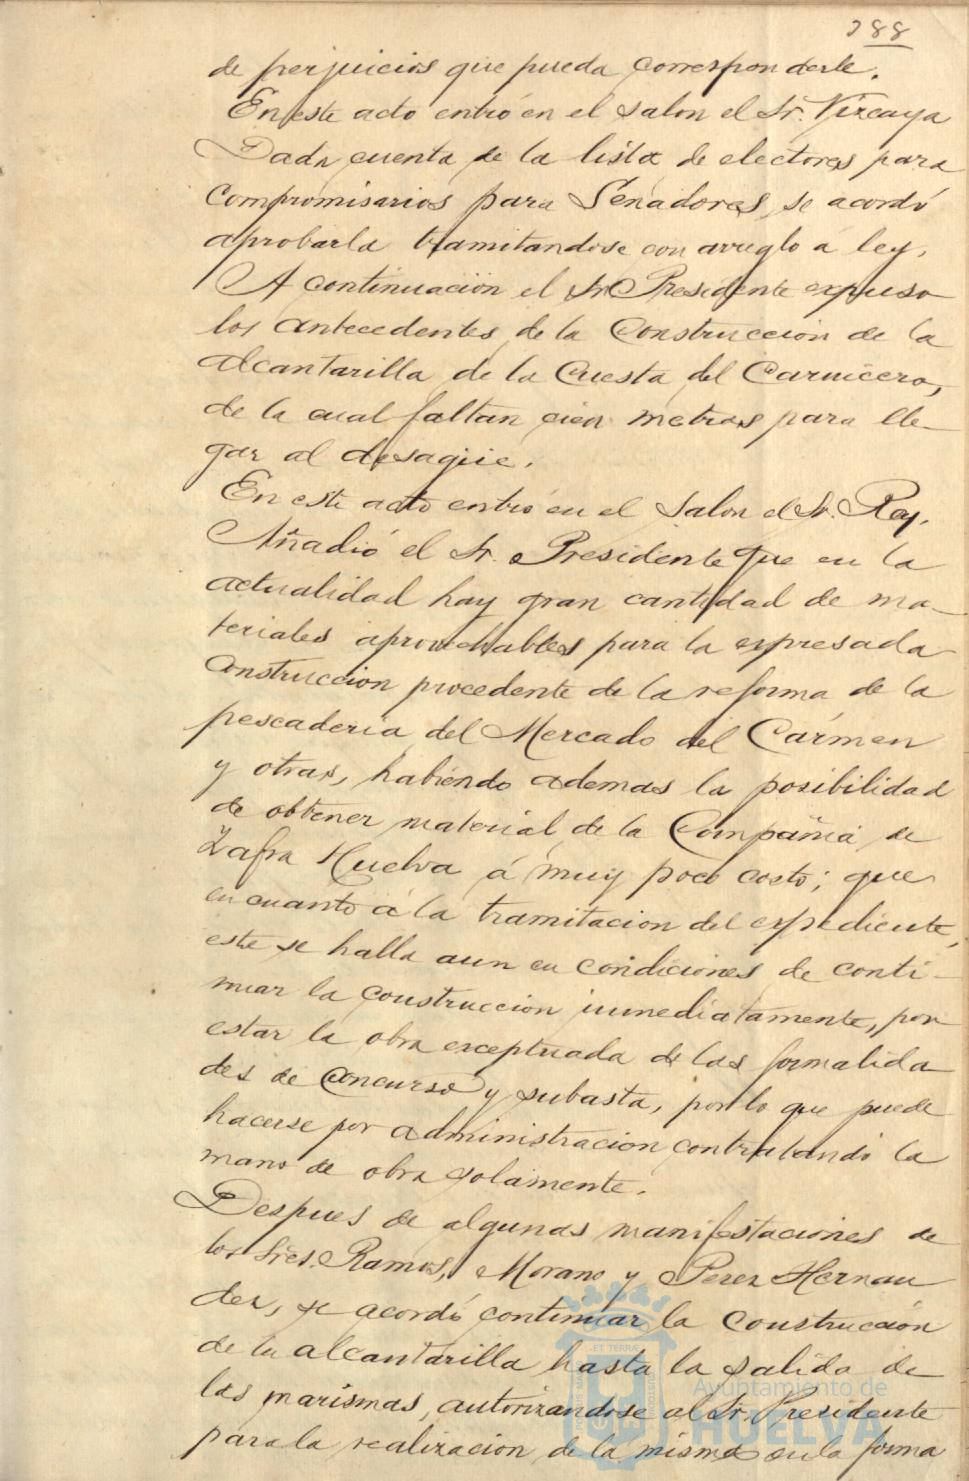 388
de perjuicios que pueda corresponderle.
En este acto entró en el salon el Sr. Vizcaya
Dada cuenta de la lista de electores para
Compromisarios para Senadores, se acordó
aprobarla tramitandose con arreglo á ley.
A continuacion el Sr. Presidente expuso
los antecedentes de la Construccion de la
alcantarilla de la Cuesta del Carnicero,
de la cual faltan cien metros para lle-
gar al desagüe.
En este acto entró en el Salon el Sr. Rey.
Añadió el Sr. Presidente que en la
actualidad hay gran cantidad de ma-
teriales aprovechables para la expresada
Construccion procedente de la reforma de la
pescaderia del Mercado del Cármen
y otras, habiendo ademas la posibilidad
de obtener material de la Compañia de
Zafra Huelva á muy poco costo; que
en cuanto á la tramitacion del expediente,
este se halla aun en condiciones de conti-
nuar la construccion inmediatamente, por
estar la obra exceptuada de las formalida
des de Concurso y subasta, por lo que puede
hacerse por administracion contratando la
mano de obra solamente.
Despues de algunas manifestaciones de
los Sres. Ramos, Morano y Perez Hernan
dez, se acordó continuar la construccion
de la alcantarilla hasta la salida de
las marismas, autorizandose al Sr. Presidente
para la realizacion de la misma en la forma
ET TERRÆ
Ayuntamiento de
HUELVA